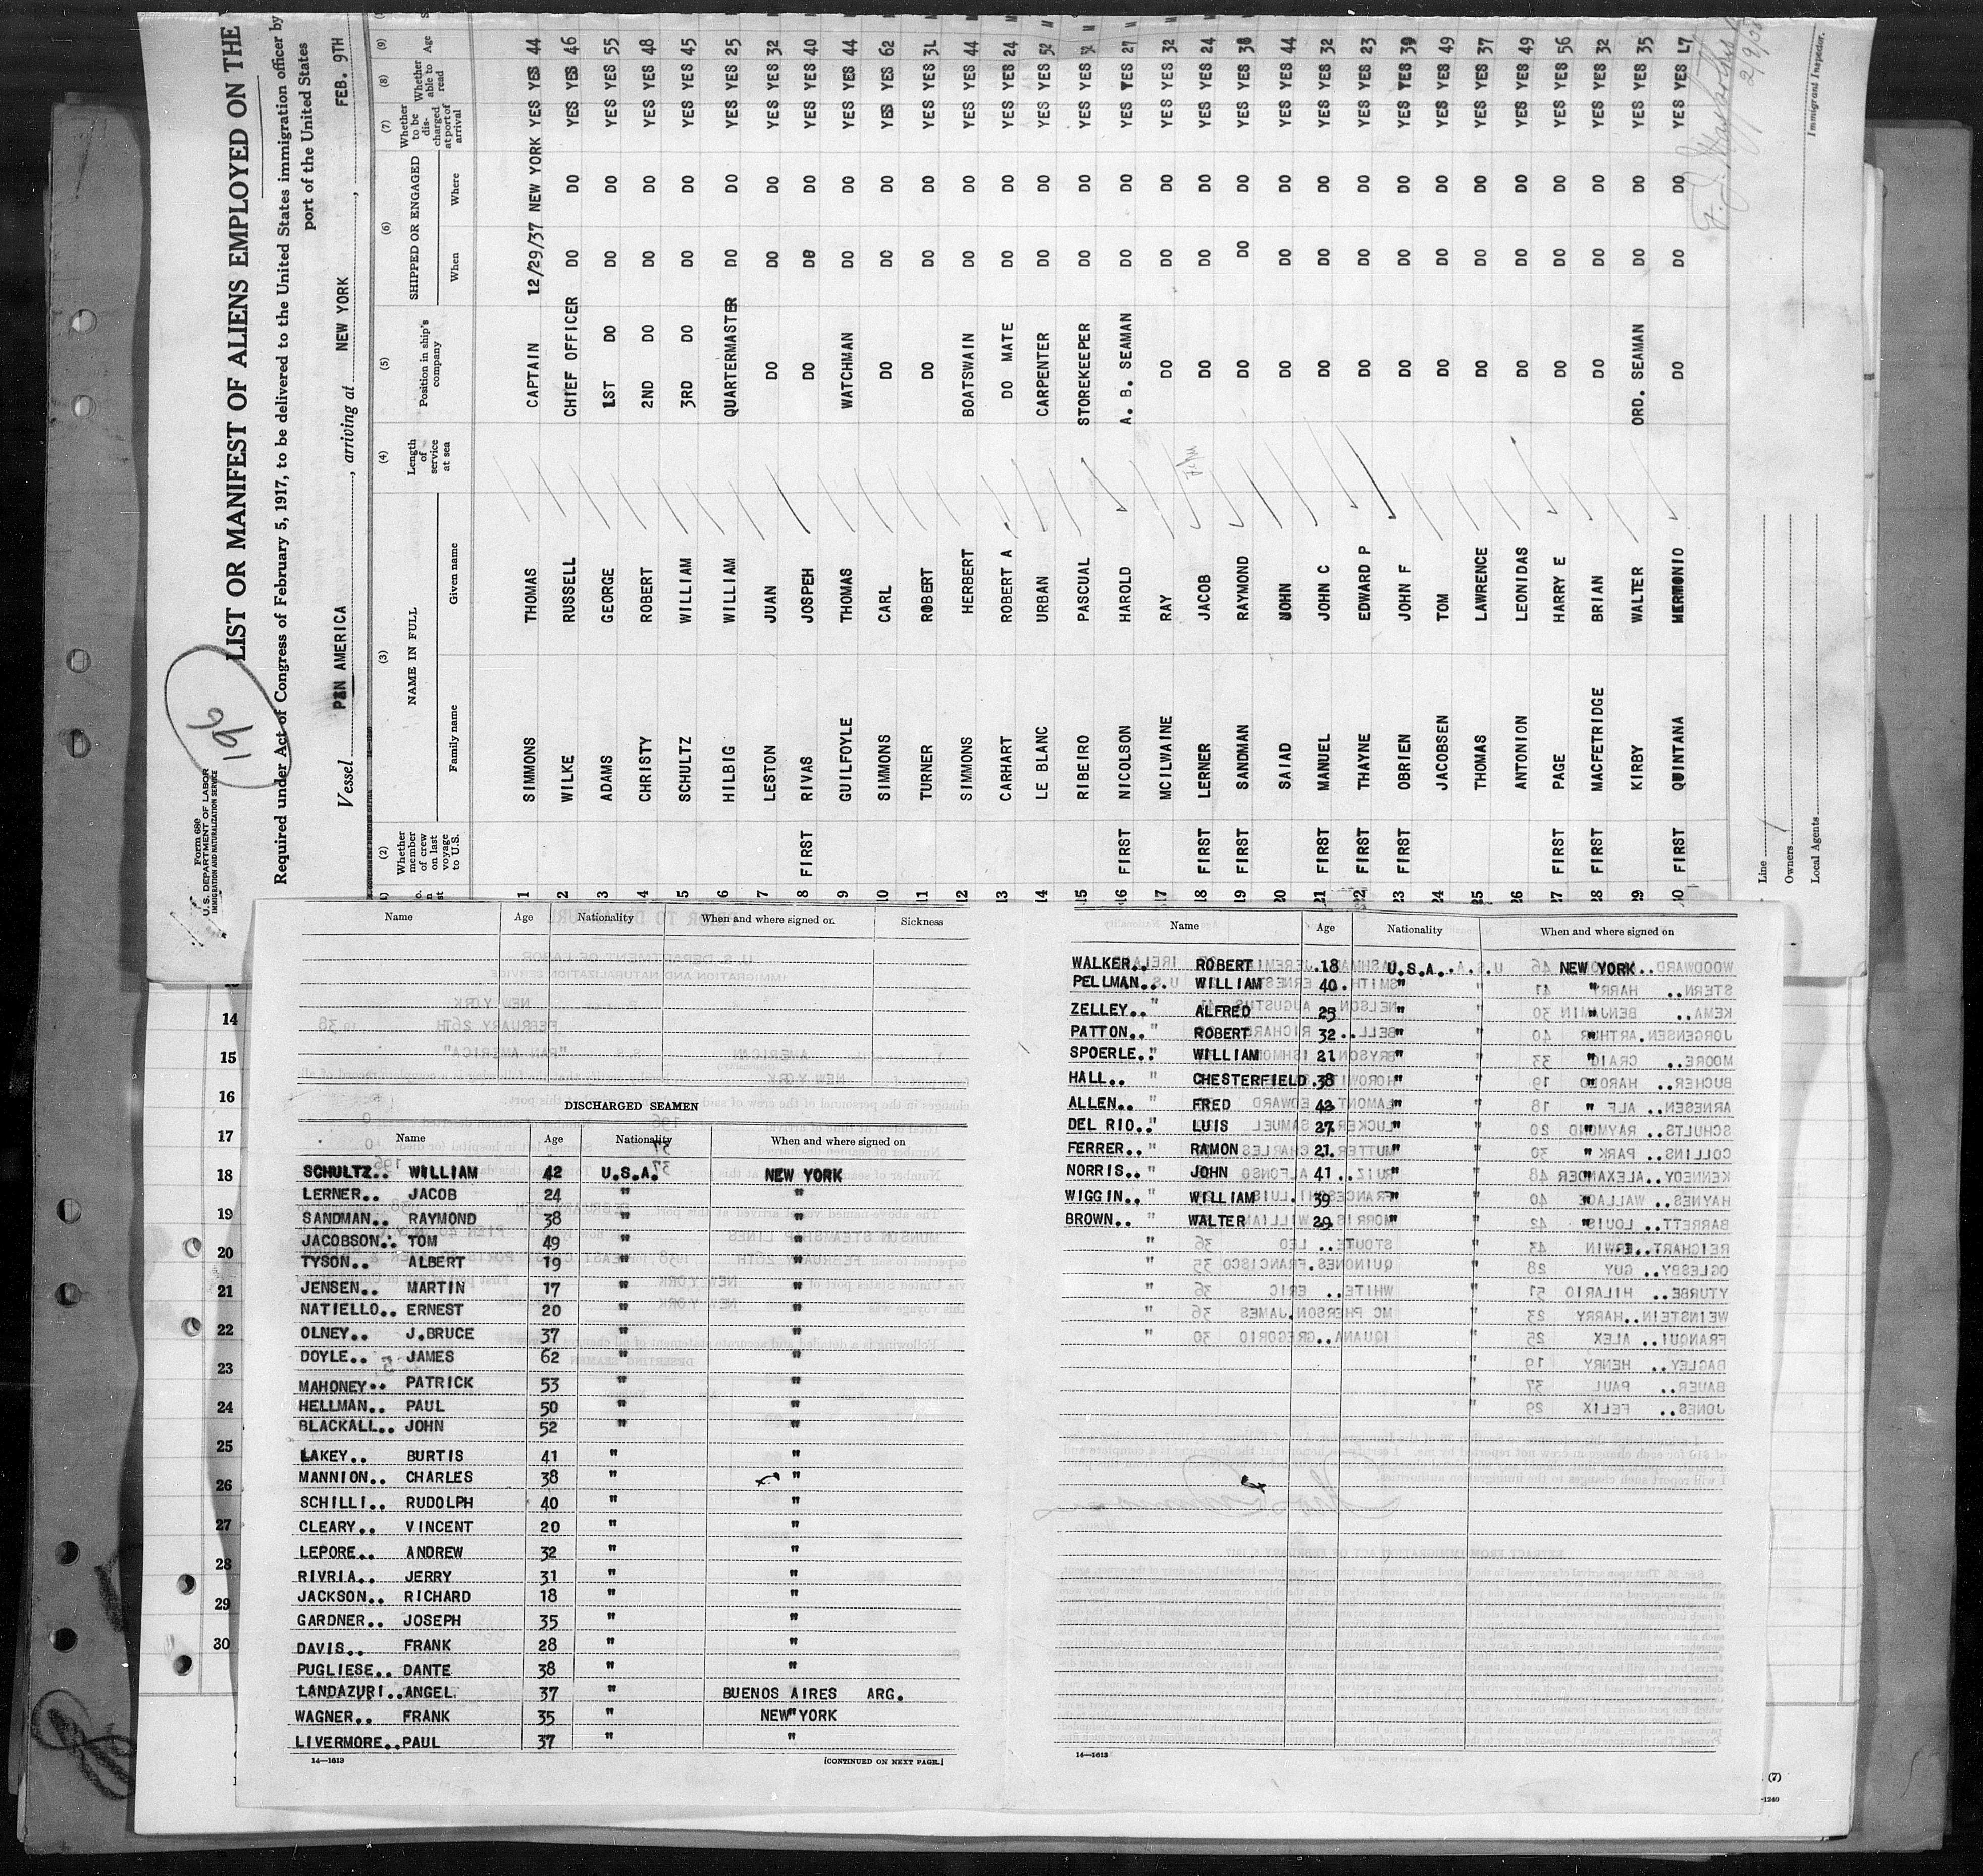 Form 680
U. S. DEPARTMENT OF LABOR
IMMIGRATION AND NATURALIZATION SERVICE
196
LIST OR MANIFEST OF ALIENS EMPLOYED ON THE
Required under Act of Congress of February 5, 1917, to be delivered to the United States immigration officer by
port of the United States
Vessel PAN AMERICA , arriving at NEW YORK , FEB. 9TH
(2) (3) (4) (5) (6) (7) (8) (9)
Whether member of crew on last voyage to U.S. NAME IN FULL Length of service at sea Position in ship's company SHIPPED OR ENGAGED Whether to be discharged at port of arrival Whether able to read Age
Family name Given name When Where
1 SIMMONS THOMAS CAPTAIN 12/29/37 NEW YORK YES YES 44
2 WILKE RUSSELL CHIEF OFFICER DO DO YES YES 46
3 ADAMS GEORGE 1ST DO DO DO YES YES 55
4 CHRISTY ROBERT 2ND DO DO DO YES YES 48
5 SCHULTZ WILLIAM 3RD DO DO DO YES YES 45
6 HILBIG WILLIAM QUARTERMASTER DO DO YES YES 25
7 LESTON JUAN DO DO DO YES YES 32
8 FIRST RIVAS JOSPEH DO DO DO YES YES 40
9 GUILFOYLE THOMAS WATCHMAN DO DO YES YES 44
10 SIMMONS CARL DO DO DO YES YES 62
11 TURNER ROBERT DO DO DO YES YES 31
12 SIMMONS HERBERT BOATSWAIN DO DO YES YES 44
13 CARHART ROBERT A DO MATE DO DO YES YES 24
14 LE BLANC URBAN CARPENTER DO DO YES YES 52
15 RIBEIRO PASCUAL STOREKEEPER DO DO YES YES
16 FIRST NICOLSON HAROLD A. B. SEAMAN DO DO YES YES 27
17 MCILWAINE RAY DO DO DO YES YES 32
18 FIRST LERNER JACOB DO DO DO YES YES 24
19 FIRST SANDMAN RAYMOND DO DO DO YES YES 38
20 SAIAD JOHN DO DO DO YES YES 44
21 FIRST MANUEL JOHN C DO DO DO YES YES 32
22 FIRST THAYNE EDWARD P DO DO DO YES YES 23
23 FIRST OBRIEN JOHN F DO DO DO YES YES 39
24 JACOBSEN TOM DO DO DO YES YES 49
25 THOMAS LAWRENCE DO DO DO YES YES 37
26 ANTONION LEONIDAS DO DO DO YES YES 49
27 FIRST PAGE HARRY E DO DO DO YES YES 56
28 FIRST MACFETRIDGE BRIAN DO DO DO YES YES 32
29 KIRBY WALTER ORD. SEAMAN DO DO YES YES 35
30 FIRST QUINTANA HERMONIO DO DO DO YES YES
Line
Owners
Local Agents
2/9/38
Immigrant Inspector.
Name Age Nationality When and where signed on. Sickness
DISCHARGED SEAMEN
Name Age Nationality When and where signed on
SCHULTZ.. WILLIAM 42 U.S.A. NEW YORK
LERNER.. JACOB 24 " "
SANDMAN.. RAYMOND 38 " "
JACOBSON.. TOM 49 " "
TYSON.. ALBERT 19 " "
JENSEN.. MARTIN 17 " "
NATIELLO.. ERNEST 20 " "
OLNEY.. J.BRUCE 37 " "
DOYLE.. JAMES 62 " "
MAHONEY.. PATRICK 53 " "
HELLMAN.. PAUL 50 " "
BLACKALL.. JOHN 52 " "
LAKEY.. BURTIS 41 " "
MANNION.. CHARLES 38 " "
SCHILLI.. RUDOLPH 40 " "
CLEARY.. VINCENT 20 " "
LEPORE.. ANDREW 32 " "
RIVRIA.. JERRY 31 " "
JACKSON.. RICHARD 18 " "
GARDNER.. JOSEPH 35 " "
DAVIS.. FRANK 28 " "
PUGLIESE.. DANTE 38 " "
LANDAZURI..ANGEL 37 " BUENOS AIRES ARG.
WAGNER.. FRANK 35 " NEW YORK
LIVERMORE..PAUL 37 " "
14—1613
[CONTINUED ON NEXT PAGE.]
Name Age Nationality When and where signed on
WALKER.. ROBERT 18 U.S.A. NEW YORK
PELLMAN... WILLIAM 40 " "
ZELLEY.. ALFRED 25 " "
PATTON.. ROBERT 32 " "
SPOERLE.. WILLIAM 21 " "
HALL.. CHESTERFIELD 38 " "
ALLEN.. FRED 42 " "
DEL RIO.. LUIS 27 " "
FERRER.. RAMON 21 " "
NORRIS.. JOHN 41 " "
WIGGIN.. WILLIAM 39 " "
BROWN.. WALTER 29 " "
14—1613
14
15
16
17
18
19
20
21
22
23
24
25
26
27
28
29
30
(7)
-1240